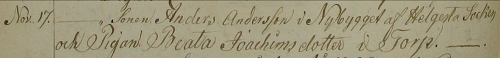 Nov. 17. — „ Sonen Anders Andersson i Nybygget af Helgesta Socken
och Pigan Beata Joachims dotter i Torp. —.